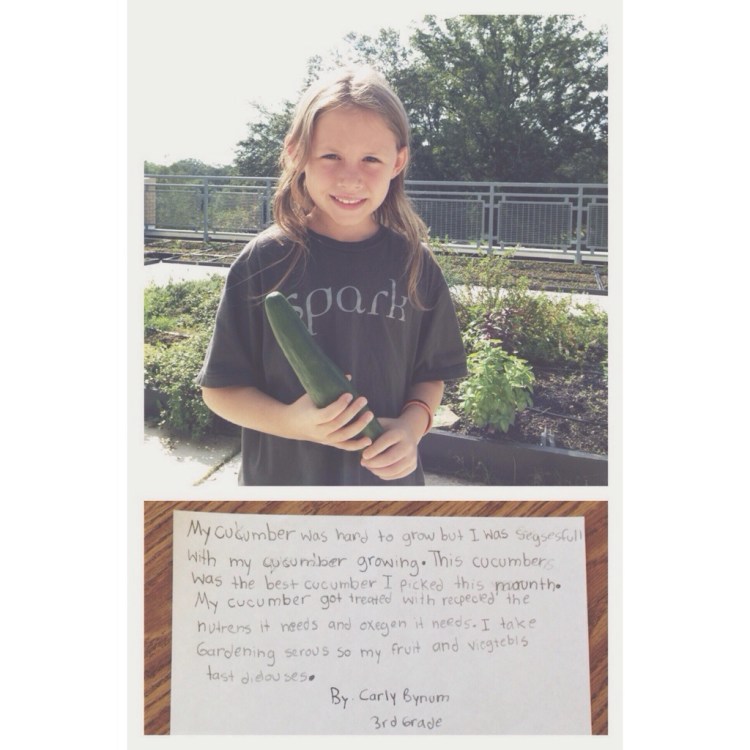 spark
My cucumber was hard to grow but I was siegsesfull
with my cucumber growing. This cucumber
was the best cucumber I picked this maunth.
My cucumber got treated with recpeced the
nutrens it needs and oxegen it needs. I take
Gardening serous so my fruit and viegtebls
tast dielouses.
By. Carly Bynum
3rd Grade